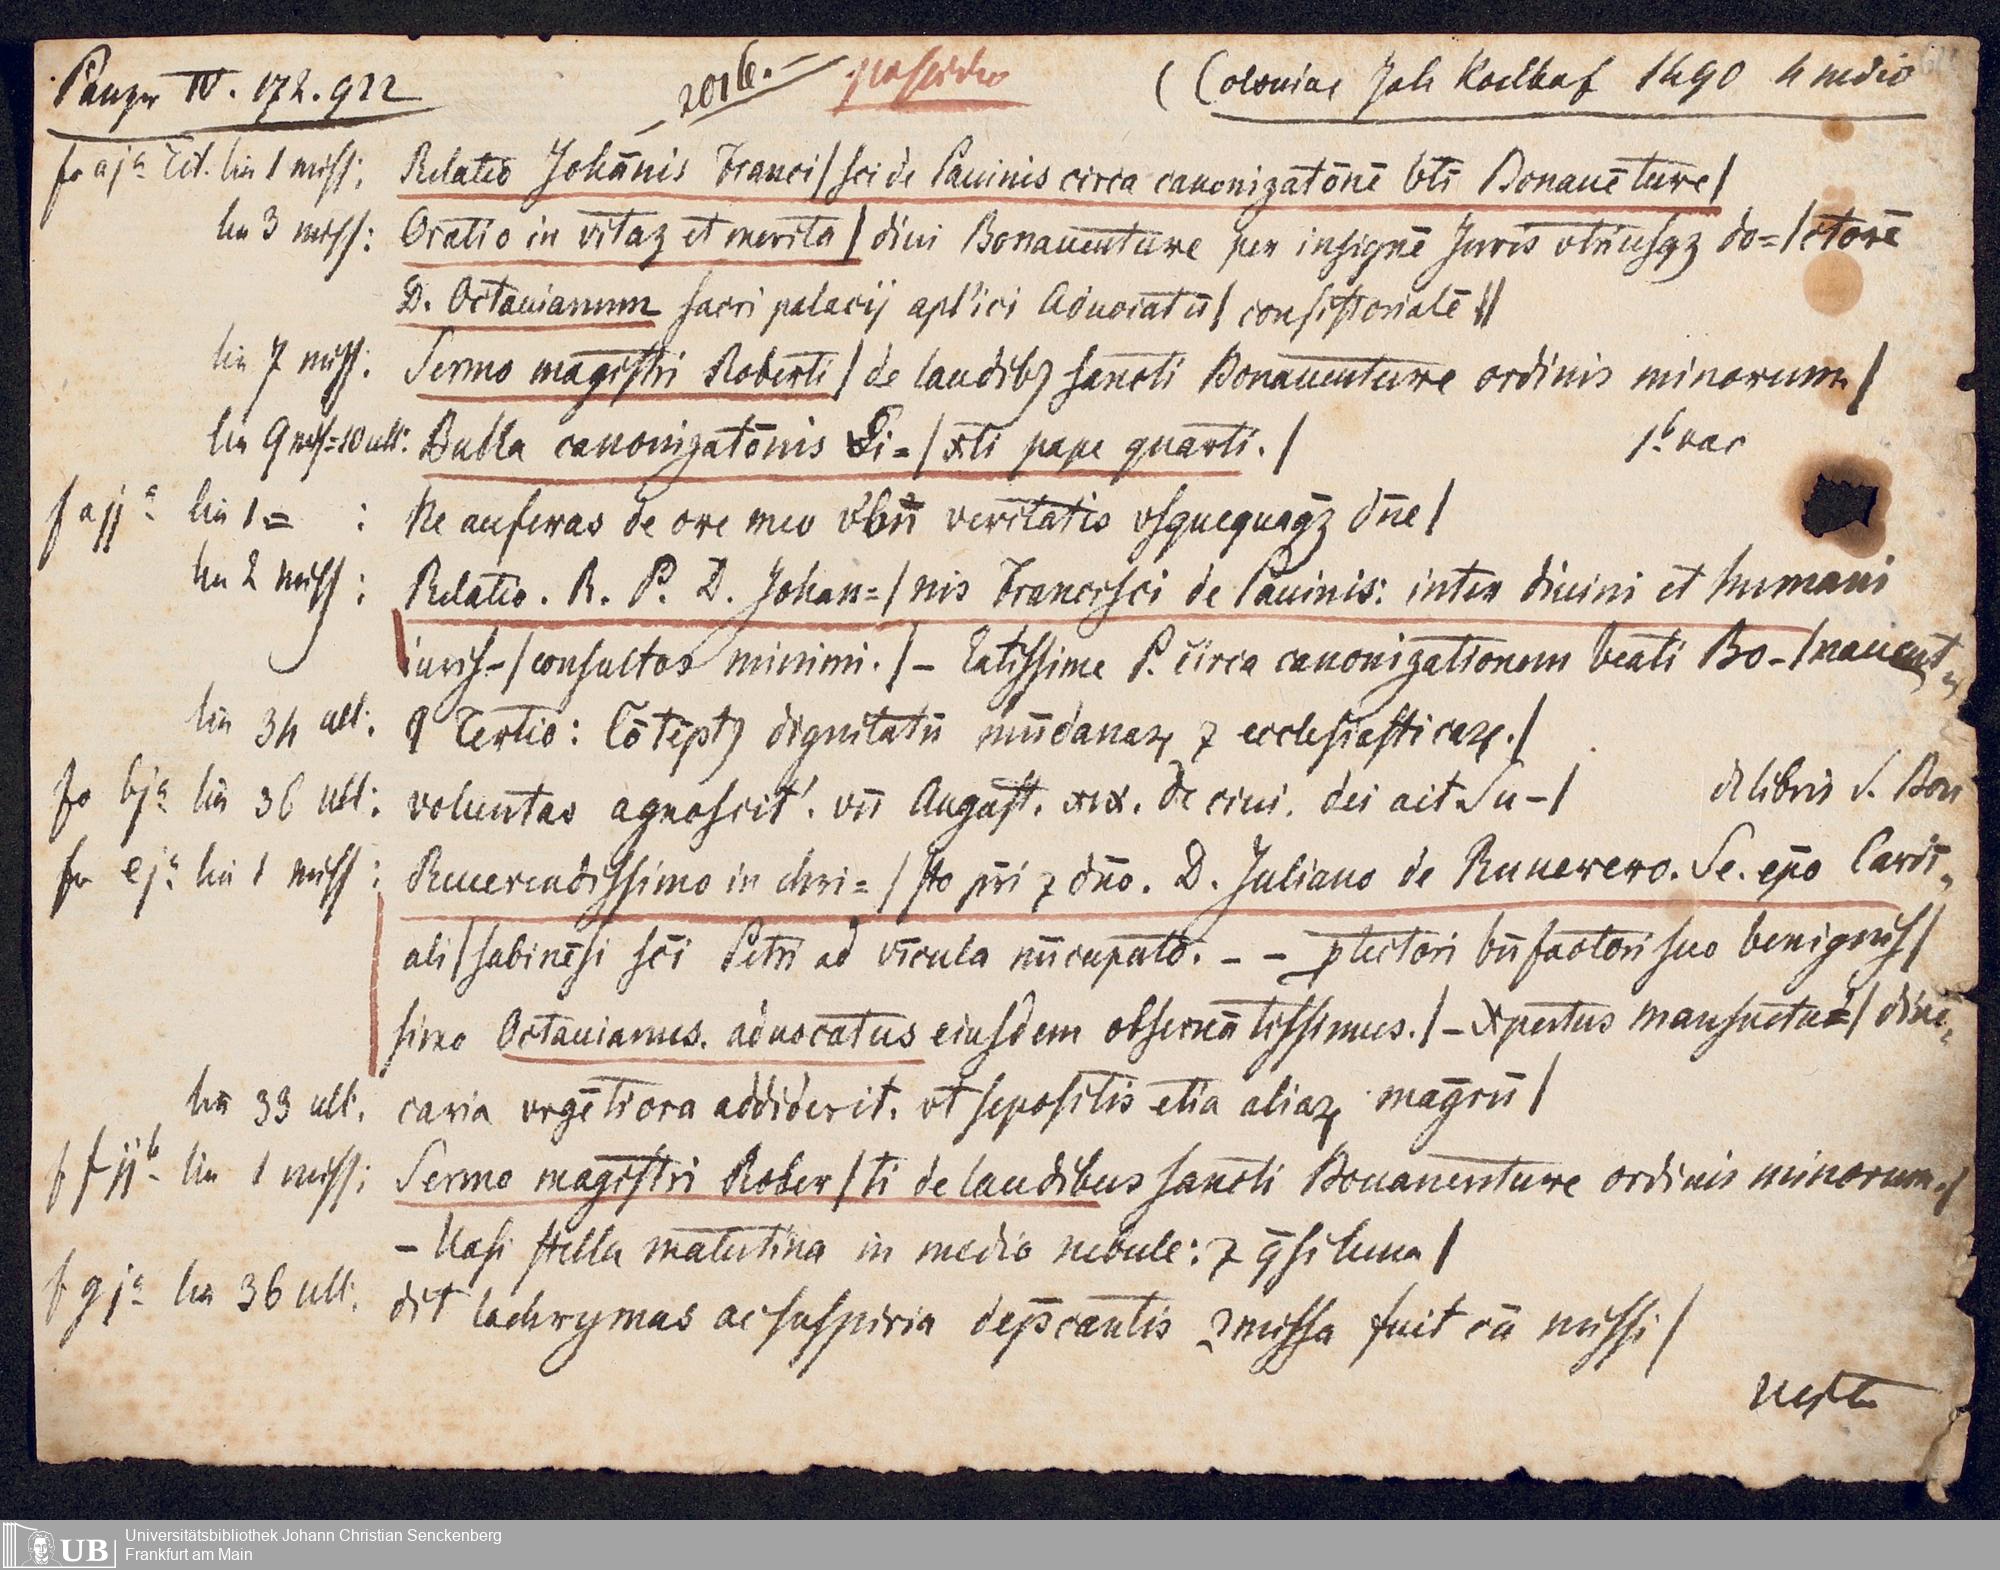 Panzer IV. 172. 922 2016. possideo (Coloniae Joh Koelhof 1490 4 medio
fo aj a Tit. lin 1 miss: Relatio Johānis Franci/sci de Pauinis circa canonizatōnē bti Bonauēture/
lin 3 miss: Oratio in vitaz et merita/ diui Bonauenture per insignē Juris vtriusqz do=/ctorē
D. Octauianum sacri palacij apl'ici Aduocatū/ consistorialē //
lin 7 miss: Sermo magistri Roberti/ de laudibz sancti Bonauenture ordinis minorum/
lin 9 miss=10 ult: Bulla canonizatōnis Si=/xti pape quarti./ 1b vac
f ajj a lin 1= : Ne auferas de ore meo v'bū veritatis vsquequaqz dn̄e/
lin 2 miss: Relatio. R. P. D. Johan=/nis Francisci de Pauinis: inter diuini et humani
iuris-/consultos minimi./ - Eatissime P. circa canonizationem beati Bo-/nauent-
lin 34 ult: q Tertio: Cōtēptz dignitatū mūdanaꝝ ⁊ ecclesiasticaꝝ./
fo bj a lin 36 ult: voluntas agnoscit'. vn̄ August. xix. de ciui. dei ait. Su-/ de libris S. Bon
fo ej a lin 1 miss: Reuerendissimo in chri=/sto pr̄i ⁊ dn̄o. D. Juliano de Ruuerero. Se. ep̄o Cardi-
ali/sabinēsi sc̄i Petri ad vincula nūcupato. - - ꝑtectori bn̄factori suo benignis/
simo Octauianus. aduocatus eiusdem obseruātissimus./ - Xpertus mansuetu=/dine-
lin 33 ult. caria vrgētiora addiderit. vt sepositis etiā aliaꝝ magrū/
f fjj b lin 1 miss: Sermo magistri Rober/ti de laudibus sancti Bonauenture ordinis minorum./
- Uasi stella matutina in medio nebule: ⁊ q̄si luna/
f gj a lin 36 ult. dit lachrymas ac suspiria dep̄cantis ꝯmissa fuit cū missi/
verte
UB Universitätsbibliothek Johann Christian Senckenberg
Frankfurt am Main